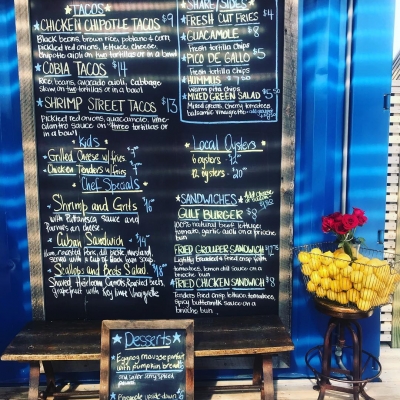 TACOS
CHICKEN CHIPOTLE TACOS $9
Black beans, brown rice, poblano & corn,
pickled red onions, lettuce, cheese,
chipotle aioli on two tortillas or in a bowl
COBIA TACOS $14
rice, beans, avocado aioli, cabbage
slaw, on two tortillas or in a bowl
SHRIMP STREET TACOS $13
pickled red onions, guacamole, lime-
cilantro sauce on three tortillas or
in a bowl
Kids
Grilled Cheese w/ fries
Chicken Tenders w/ fries
Chef Specials
Shrimp and Grits
w/ sauce and
parmesan cheese.
Cuban Sandwich
ham, roasted pork, dill pickle, mustard,
served with a cup of black bean soup
Scallops and Beets Salad
Shaved Heirloom Carrots, Roasted Beets,
grapefruit with Key Lime Vinaigrette
SHARE/SIDES
FRESH CUT FRIES $4
GUACAMOLE $8
Fresh tortilla chips
PICO DE GALLO $5
Fresh tortilla chips
HUMMUS
warm pita chips
MIXED GREEN SALAD
Mixed greens, cherry tomatoes
balsamic vinaigrette
Local Oysters
6 oysters
12 oysters
SANDWICHES
GULF BURGER $8
100% natural beef, lettuce,
tomato, garlic aioli on a brioche
bun
FRIED GROUPER SANDWICH
Lightly Breaded & Fried crisp with
tomatoes, lemon dill sauce on a
brioche bun
FRIED CHICKEN SANDWICH $8
Tenders Fried Crisp, lettuce, tomatoes,
spicy buttermilk sauce on a
brioche bun
Desserts
Eggnog mousse parfait
with pumpkin bread
and spiced
Pineapple upside down